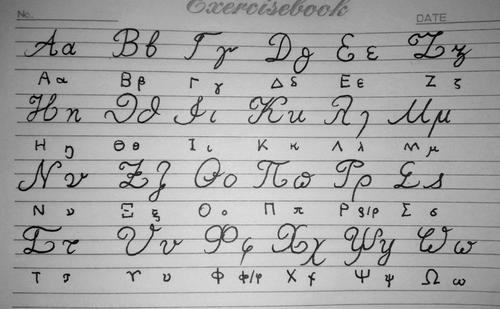 Exercisebook
No. DATE
Αα Ββ Γγ Δδ Εε Ζζ
Α α Β β Γ γ Δ δ Ε ε Ζ ζ
Ηη Θθ Ιι Κκ Λλ Μμ
Η η Θ θ Ι ι Κ κ Λ λ Μ μ
Νν Ξξ Οο Ππ Ρρ Σς
Ν ν Ξ ξ Ο ο Π π Ρ ρ/ρ Σ σ
Ττ Υυ Φφ Χχ Ψψ Ωω
Τ τ Υ υ Φ ϕ/φ Χ χ Ψ ψ Ω ω